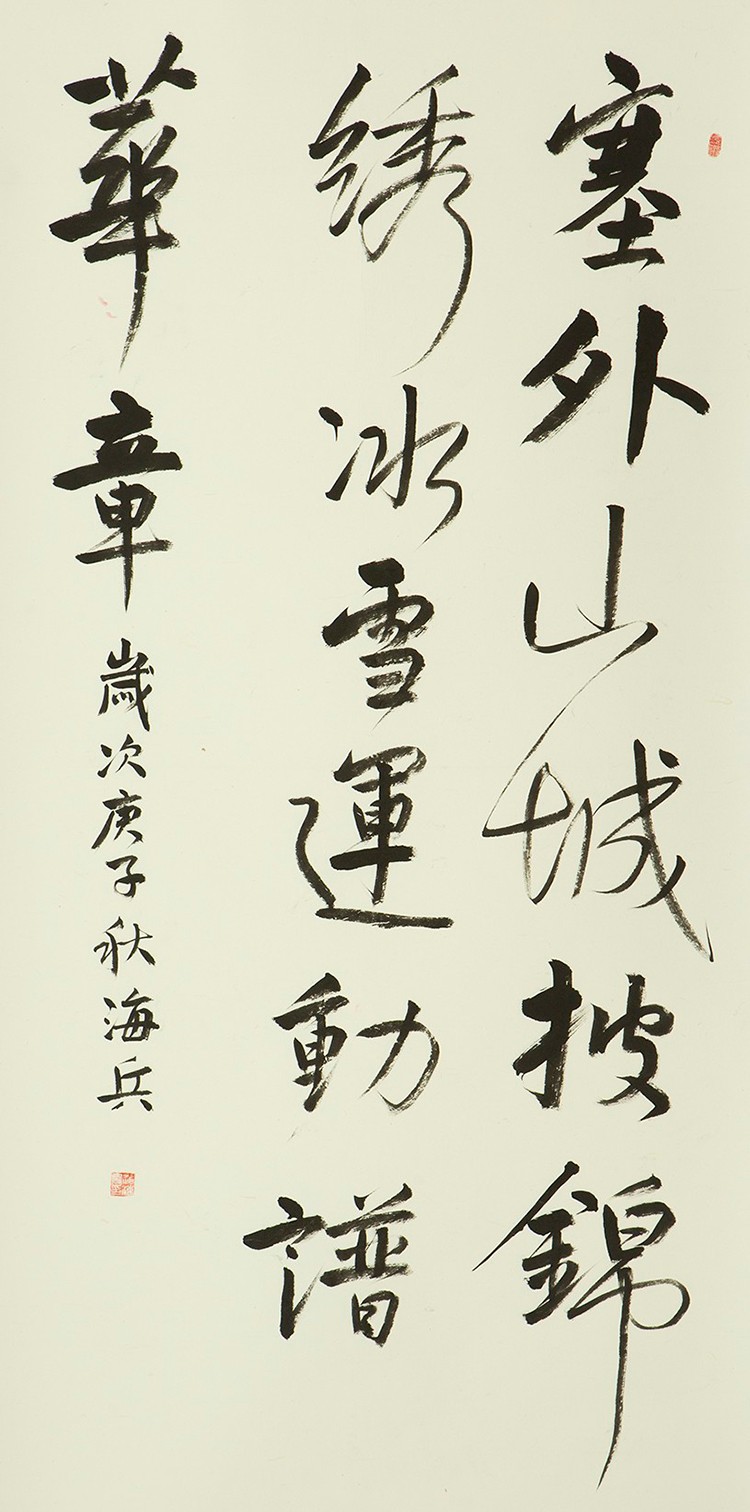 塞外山城披錦
绣冰雪運動譜
華章
歲次庚子秋海兵